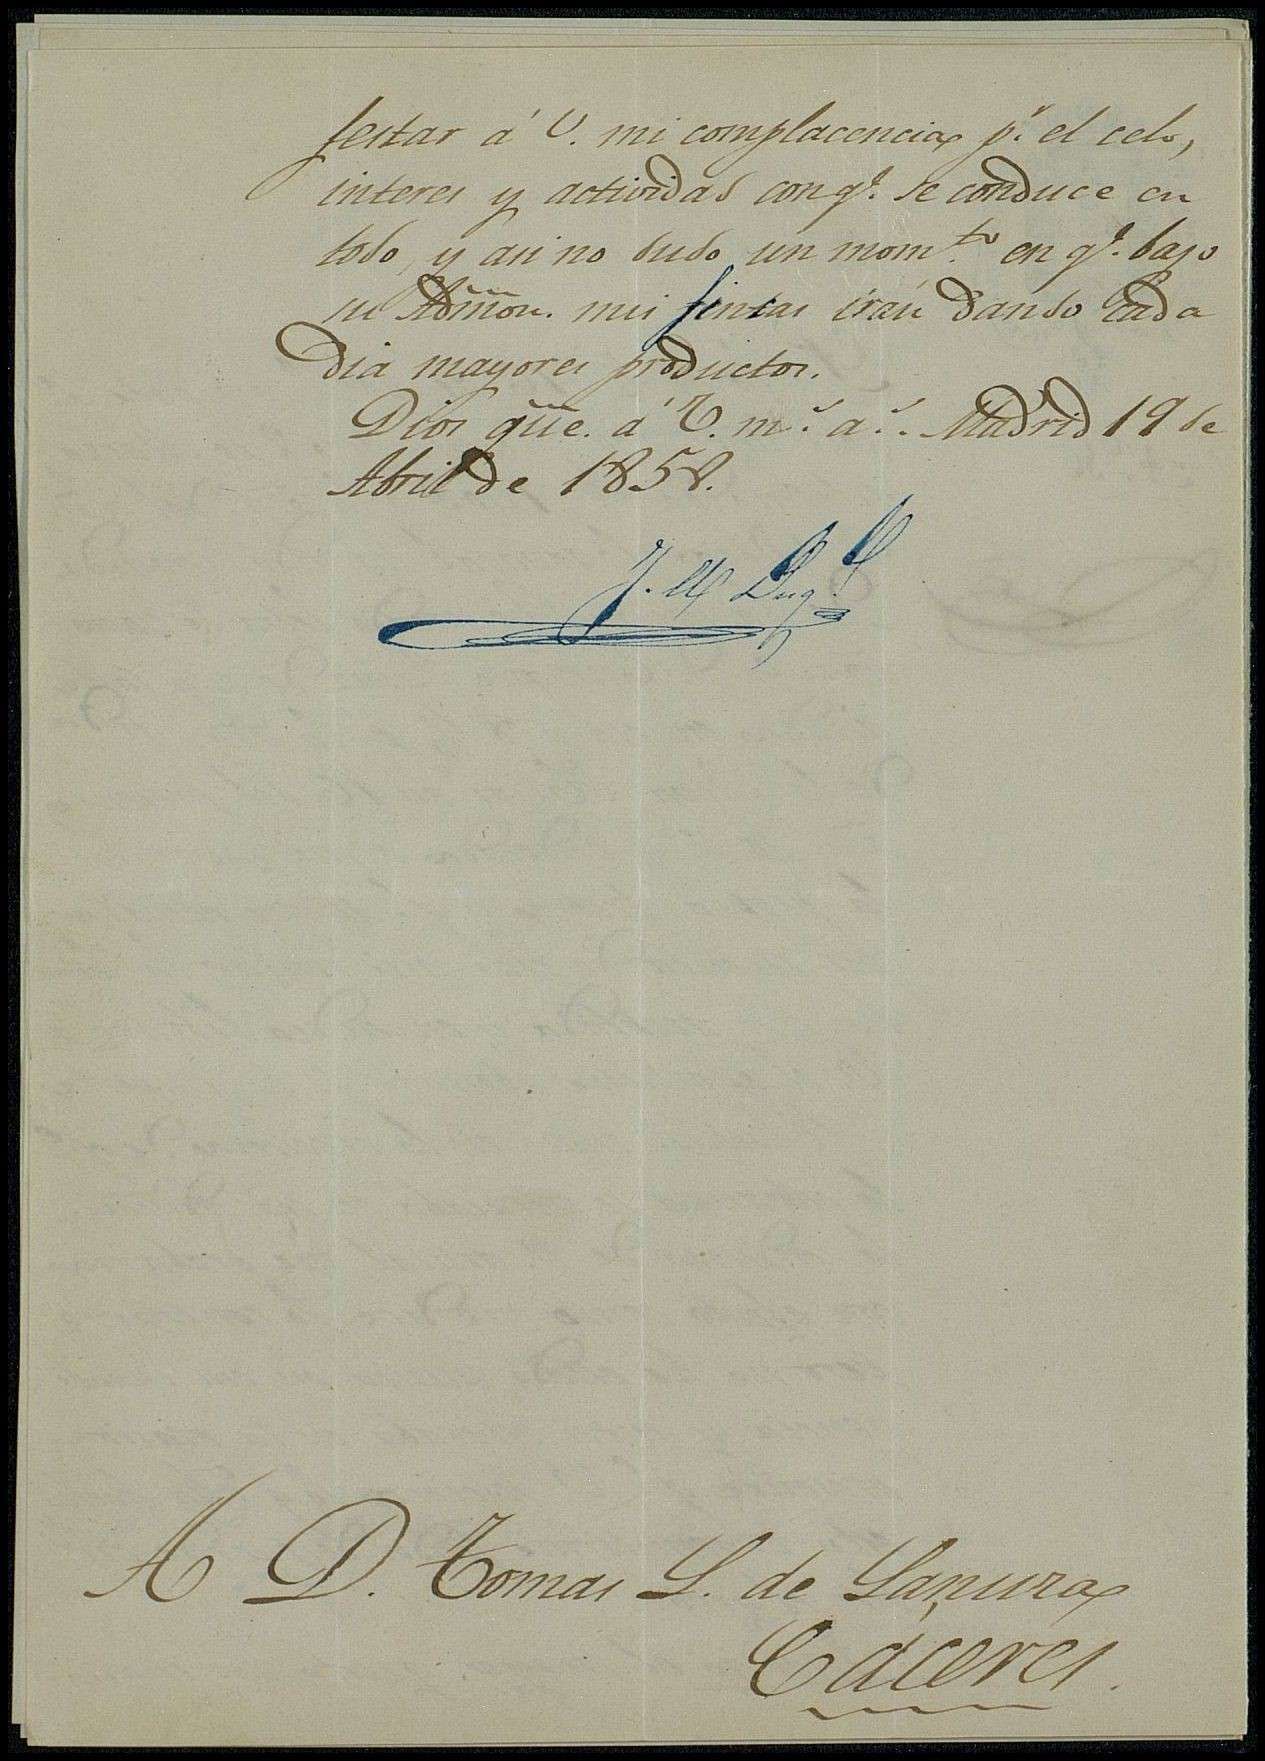 festar á V. mi complacencia p.r el celo,
interes y actividad con q.e se conduce en
todo, y asi no dudo un mom.to en q.e bajo
su Admon. mis fincas irán dando cada
dia mayores productos.
Dios gūe. á V. m.s a.s Madrid 19 de
Abril de 1858.
A D. Tomas S. de Sanura
Cáceres.